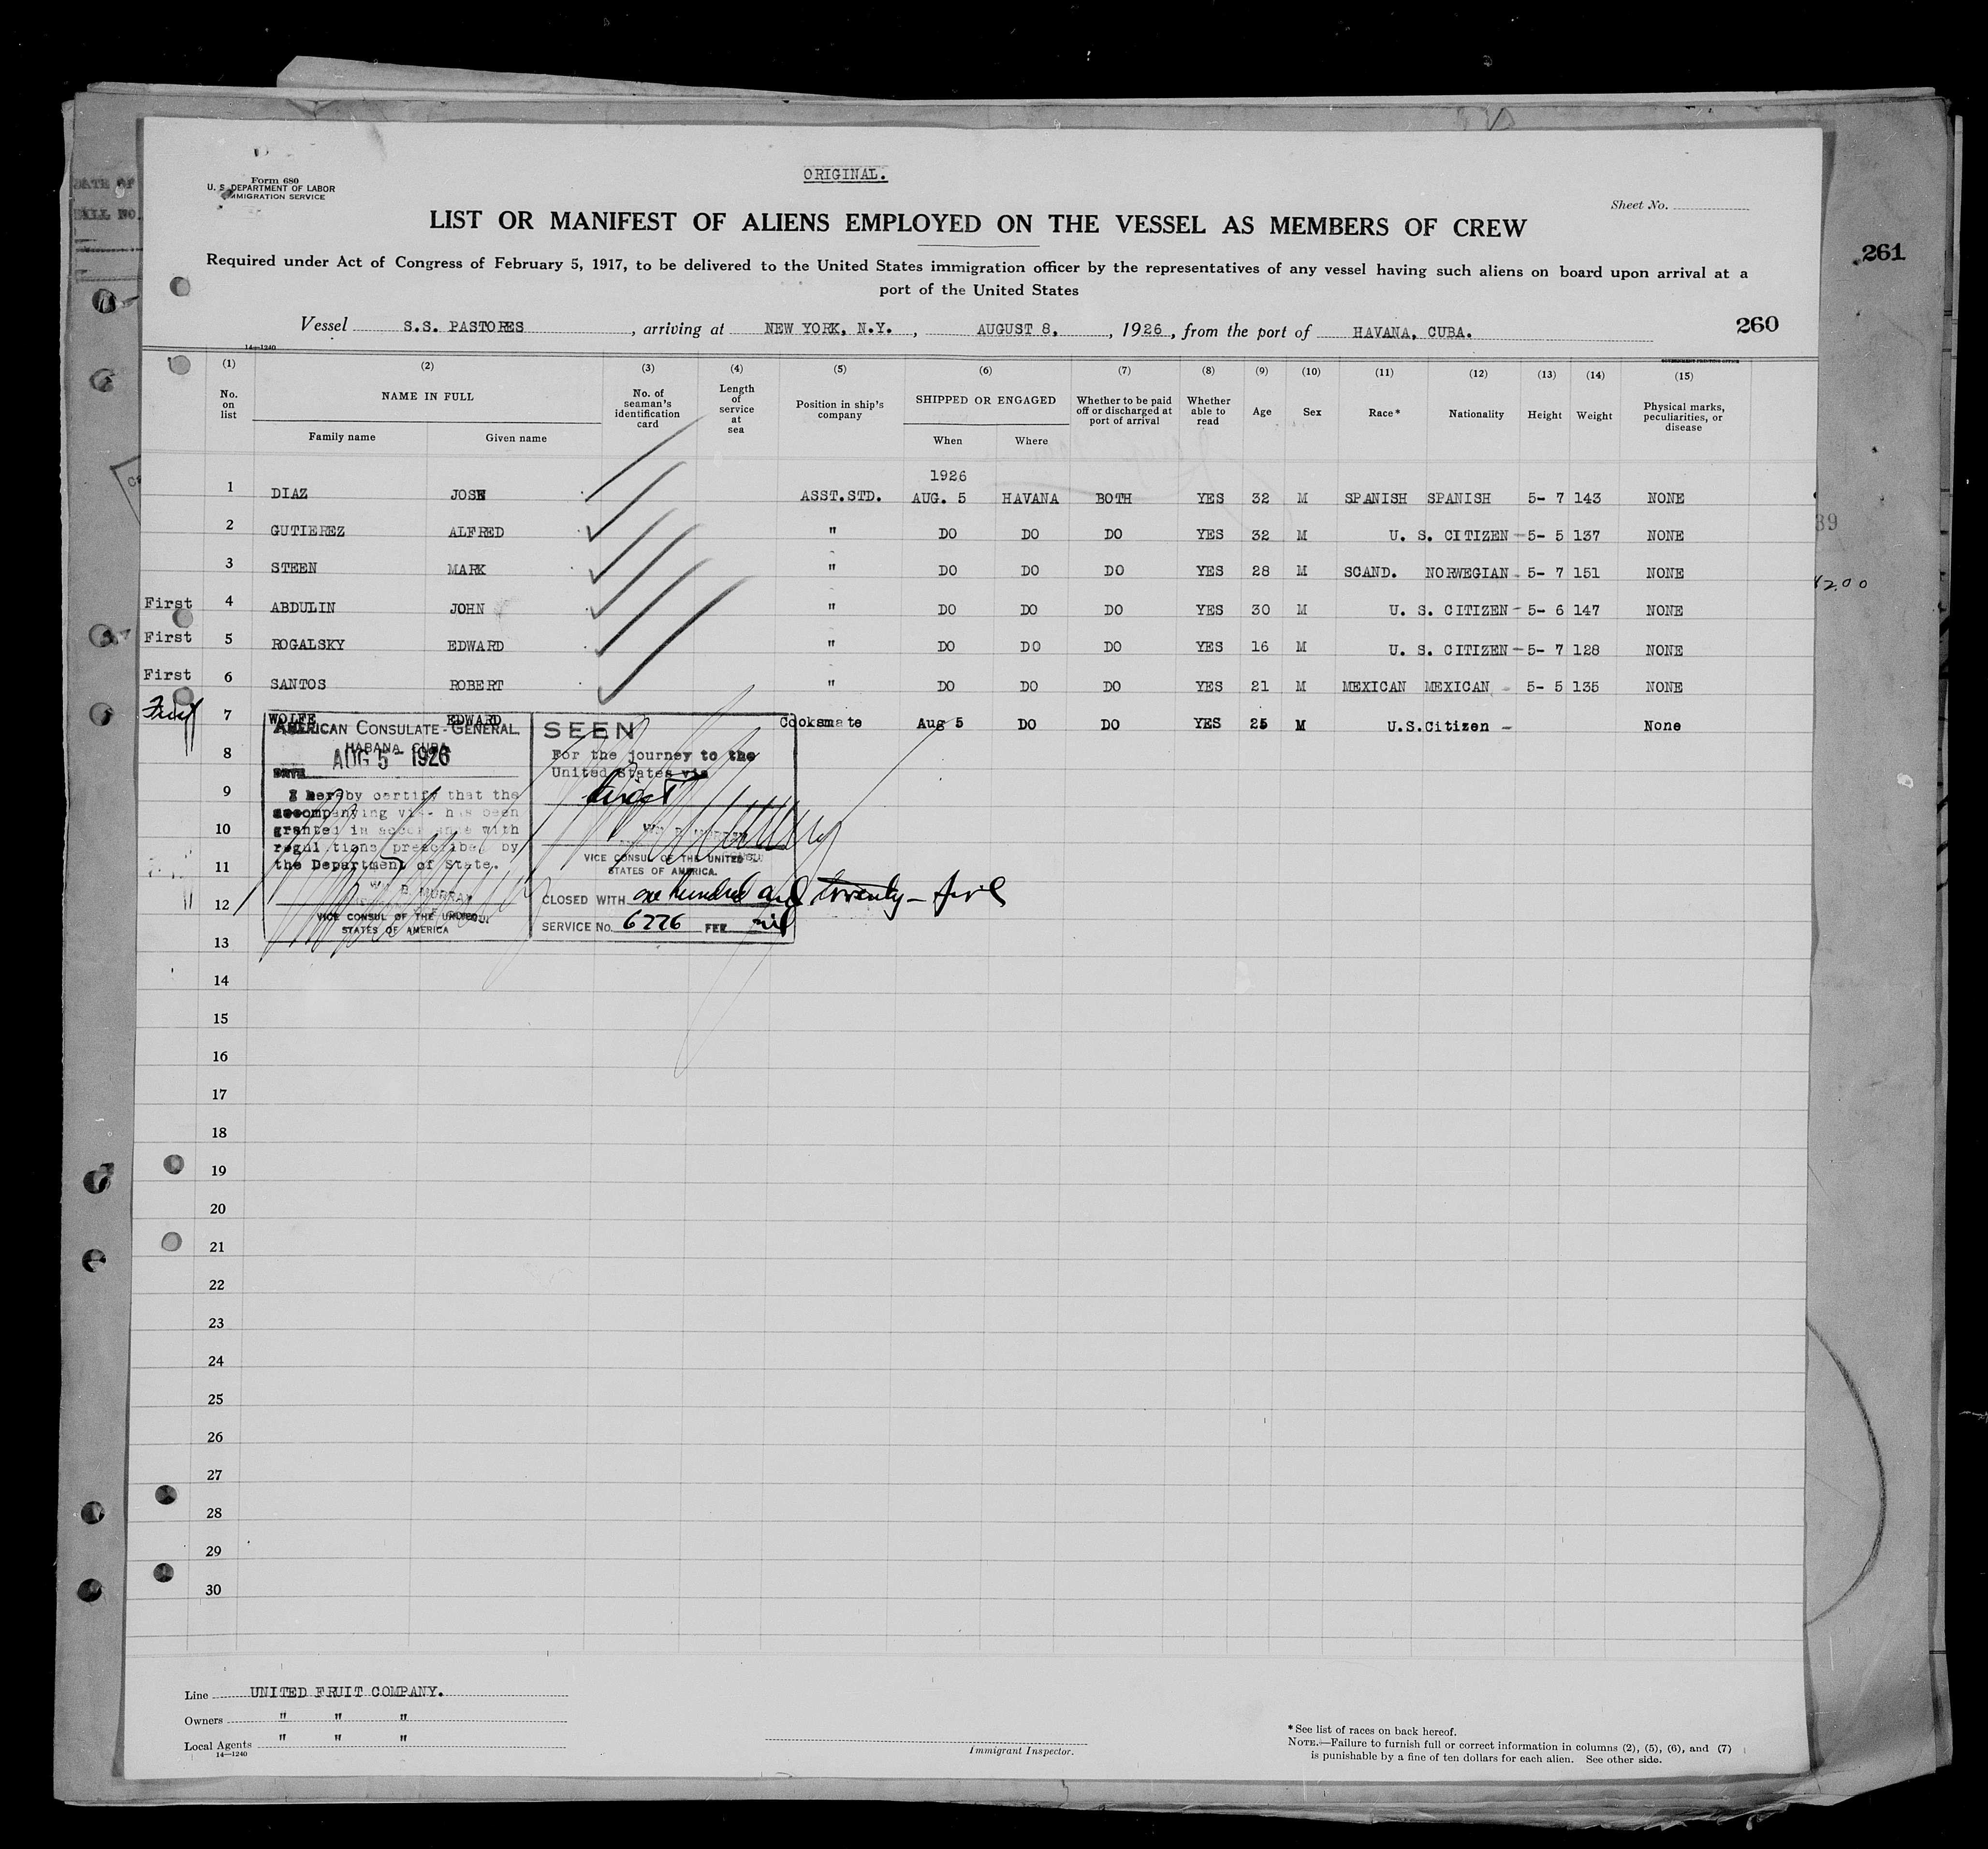 ORIGINAL.
Form 680
U. S. DEPARTMENT OF LABOR
IMMIGRATION SERVICE
Sheet No.
LIST OR MANIFEST OF ALIENS EMPLOYED ON THE VESSEL AS MEMBERS OF CREW
Required under Act of Congress of February 5, 1917, to be delivered to the United States immigration officer by the representatives of any vessel having such aliens on board upon arrival at a
port of the United States
261
260
Vessel S.S. PASTORES, arriving at NEW YORK, N.Y., AUGUST 8, 1926, from the port of HAVANA, CUBA.
14—1240
GOVERNMENT PRINTING OFFICE
(1) (2) (3) (4) (5) (6) (7) (8) (9) (10) (11) (12) (13) (14) (15)
No. on list
NAME IN FULL
Family name Given name
No. of seaman's identification card
Length of service at sea
Position in ship's company
SHIPPED OR ENGAGED
When Where
Whether to be paid off or discharged at port of arrival
Whether able to read
Age
Sex
Race*
Nationality
Height
Weight
Physical marks, peculiarities, or disease
1926
1 DIAZ JOSE ASST.STD. AUG. 5 HAVANA BOTH YES 32 M SPANISH SPANISH 5- 7 143 NONE
2 GUTIEREZ ALFRED " DO DO DO YES 32 M U. S. CITIZEN 5- 5 137 NONE
3 STEEN MARK " DO DO DO YES 28 M SCAND. NORWEGIAN 5- 7 151 NONE
First 4 ABDULIN JOHN " DO DO DO YES 30 M U. S. CITIZEN 5- 6 147 NONE
First 5 ROGALSKY EDWARD " DO DO DO YES 16 M U. S. CITIZEN 5- 7 128 NONE
First 6 SANTOS ROBERT " DO DO DO YES 21 M MEXICAN MEXICAN 5- 5 135 NONE
First 7 WOLFE EDWARD Cooksmate Aug 5 DO DO YES 25 M U.S.Citizen - None
8
9
10
11
12
13
14
15
16
17
18
19
20
21
22
23
24
25
26
27
28
29
30
AMERICAN CONSULATE-GENERAL,
HABANA, CUBA
DATE AUG 5 - 1926
I hereby certify that the
accompanying visa has been
granted in accordance with
regulations prescribed by
the Department of State.
WM B. MURRAY
VICE CONSUL OF THE UNITED
STATES OF AMERICA
SEEN
For the journey to the
United States via
direct
WM B. MURRAY
VICE CONSUL OF THE UNITED
STATES OF AMERICA.
CLOSED WITH one hundred and twenty-five
SERVICE No. 6226 FEE nil
Line UNITED FRUIT COMPANY.
Owners " " "
Local Agents " " "
14—1240
Immigrant Inspector.
*See list of races on back hereof.
NOTE.—Failure to furnish full or correct information in columns (2), (5), (6), and (7)
is punishable by a fine of ten dollars for each alien. See other side.
DATE OF
BILL NO.
39